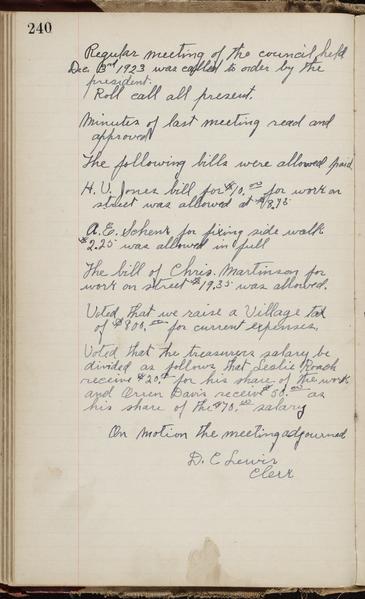 240
Regular meeting of the council held
Dec. 3rd 1923 was called to order by the
president.
Roll call all present.
Minutes of last meeting read and
approved
The following bills were allowed paid
H. V. Jones bill for $10.00 for work on
street was allowed at $8.75
A. E. Schenk for fixing side walk
$2.25 was allowed in full
The bill of Chris. Martinson for
work on street $19.35 was allowed.
Voted that we raise a Village tax
of $800.00 for current expenses.
Voted that the treasurers salary be
divided as follows that Leslie Roach
receive $20.00 for his share of the work
and Orren Davis receive $50.00 as
his share of the $70.00 salary
On motion the meeting adjourned
D. C. Lewis
Clerk